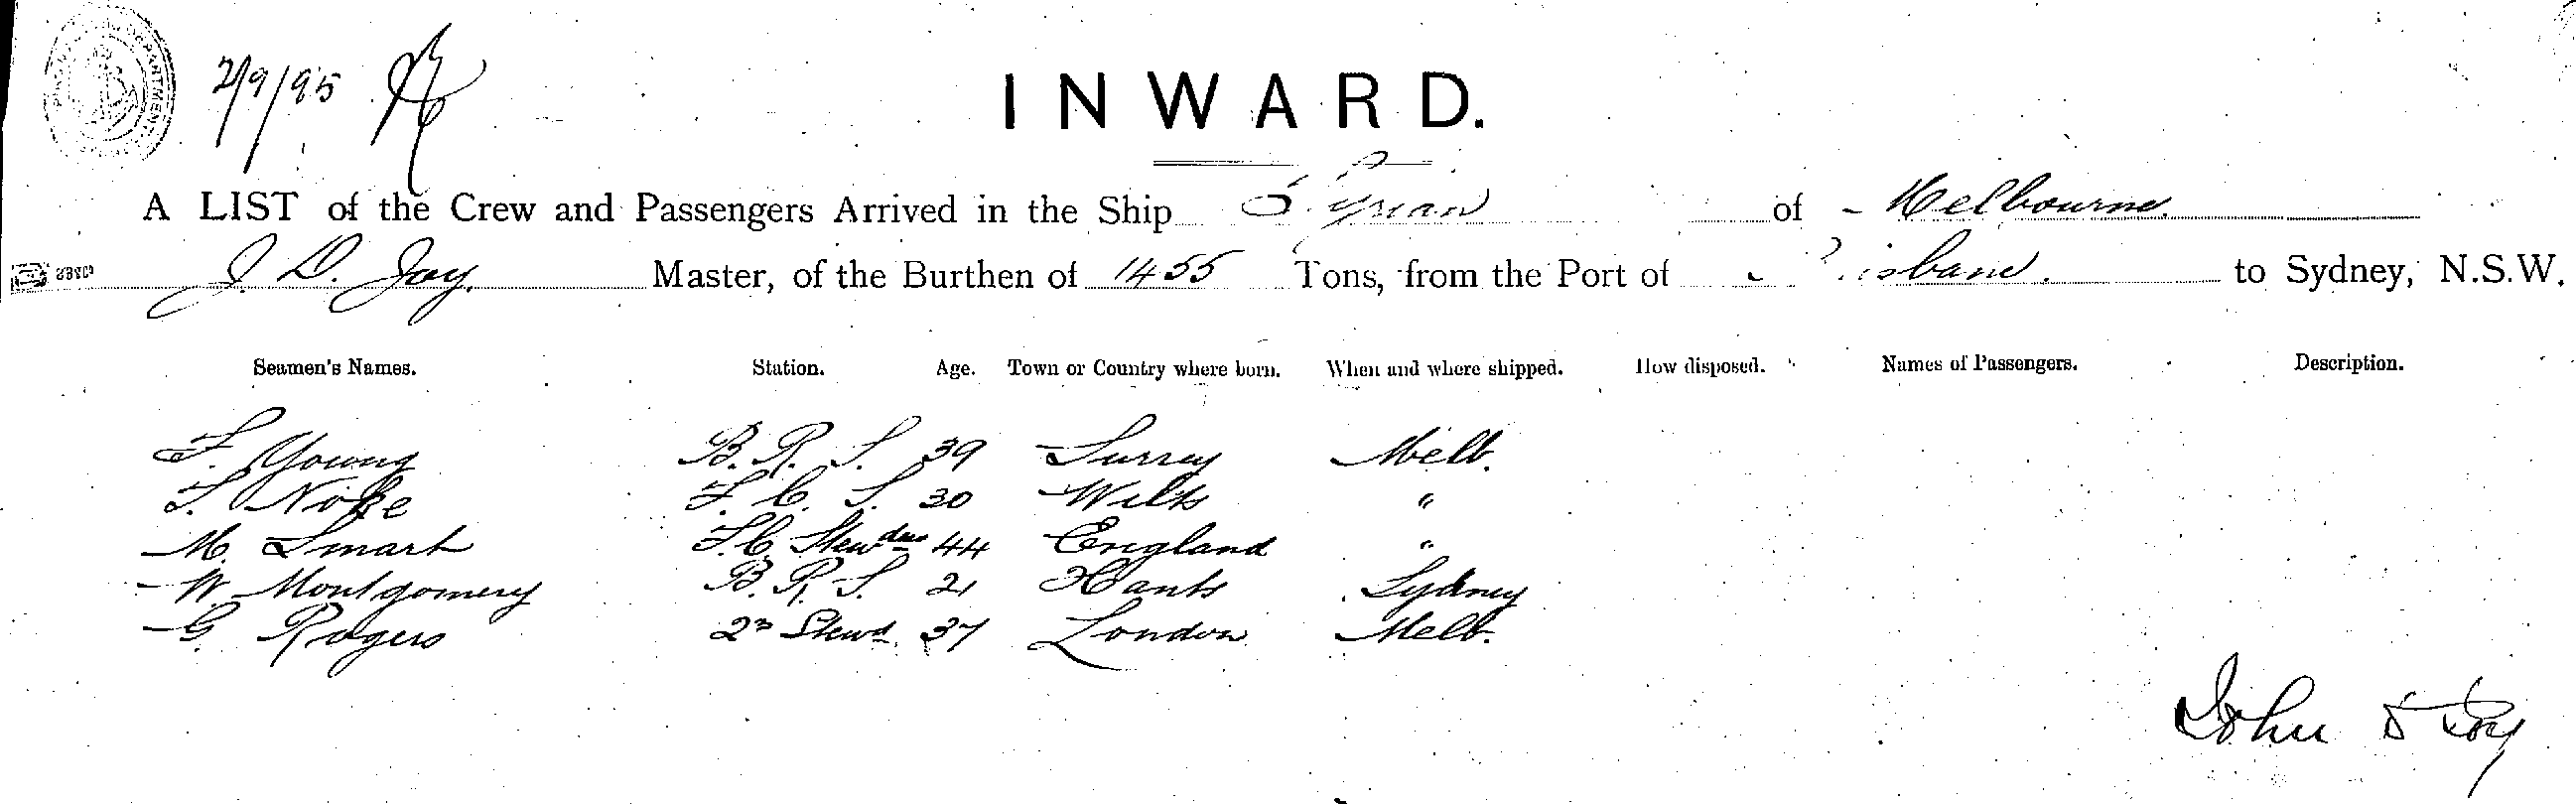 2/9/95
INWARD.
A LIST of the Crew and Passengers Arrived in the Ship S. Tyrian of Melbourne.
J. D. Joy. Master, of the Burthen of 1455 Tons, from the Port of Brisbane. to Sydney, N.S.W.
Seamen's Names. Station. Age. Town or Country where born. When and where shipped. How disposed. Names of Passengers. Description.
F. Young B. R. S. 39 Surrey Melb.
S. Noke F. C. S. 30 Wilts "
M. Smart F. C. Stewdss 44 England "
W Montgomery B. R. S. 21 Hants Sydney
G. Rogers 2nd Stewd 37 London Melb.
John D Joy